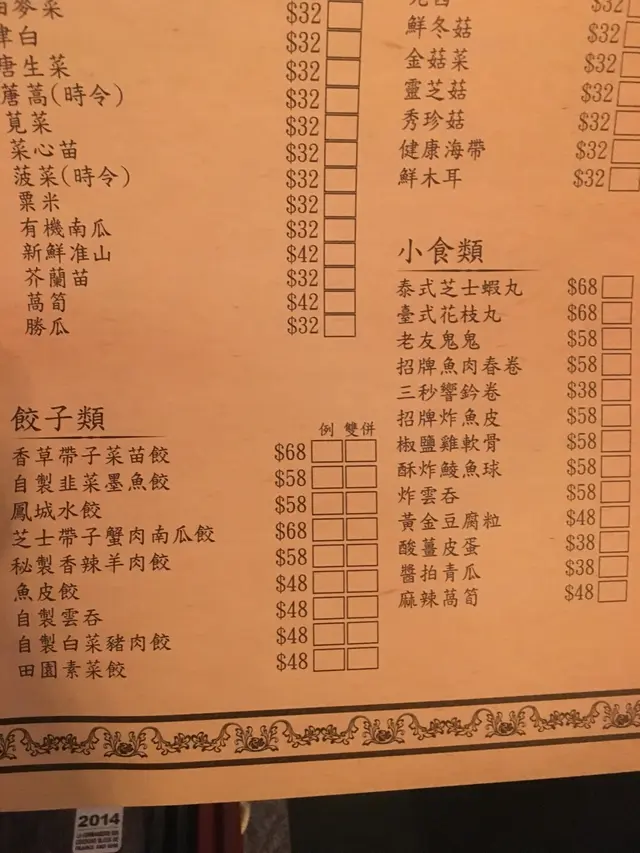 麥菜 $32
津白 $32
唐生菜 $32
蓎蒿(時令) $32
莧菜 $32
菜心苗 $32
菠菜(時令) $32
粟米 $32
有機南瓜 $32
新鮮准山 $42
芥蘭苗 $32
萵筍 $42
勝瓜 $32
餃子類
例 雙併
香草帶子菜苗餃 $68
自製韭菜墨魚餃 $58
鳳城水餃 $58
芝士帶子蟹肉南瓜餃 $68
秘製香辣羊肉餃 $58
魚皮餃 $48
自製雲吞 $48
自製白菜豬肉餃 $48
田園素菜餃 $48
$32
鮮冬菇 $32
金菇菜 $32
靈芝菇 $32
秀珍菇 $32
健康海帶 $32
鮮木耳 $32
小食類
泰式芝士蝦丸 $68
臺式花枝丸 $68
老友鬼鬼 $58
招牌魚肉春卷 $58
三秒響鈴卷 $38
招牌炸魚皮 $58
椒鹽雞軟骨 $58
酥炸鯪魚球 $58
炸雲吞 $58
黃金豆腐粒 $48
酸薑皮蛋 $38
醬拍青瓜 $38
麻辣萵筍 $48
2014